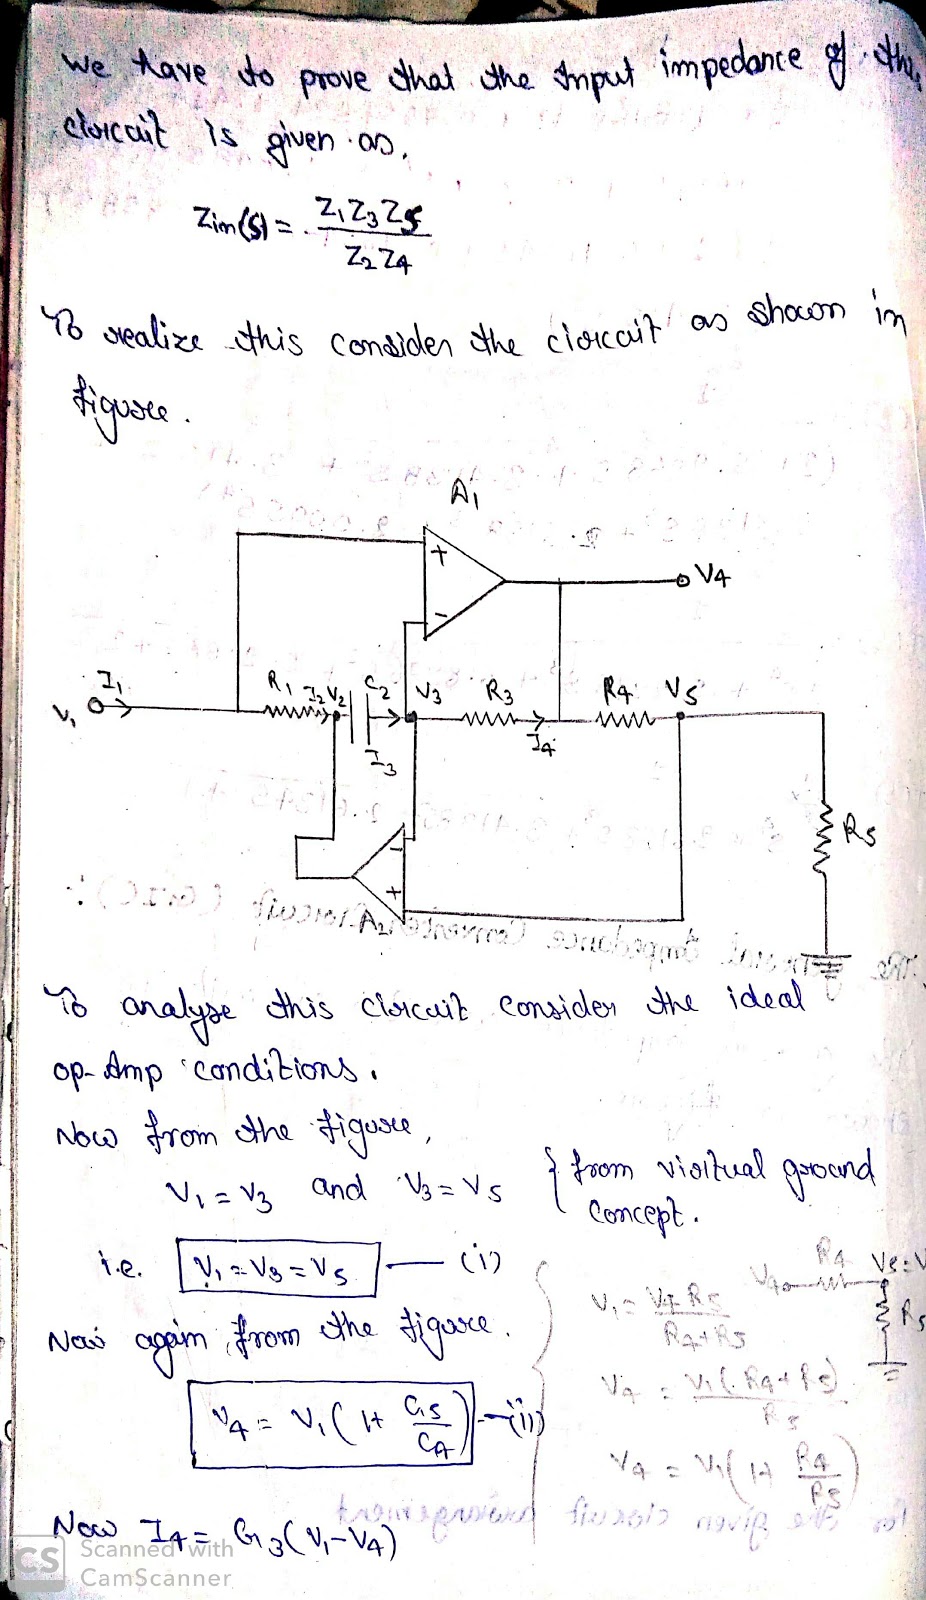 We have to prove that the Input impedance of this
circuit is given as,
Zin(s) = Z1Z3Z5
Z2Z4
To realize this consider the circuit as shown in
figure.
A1
+
-
V4
I1
V1
R1
I2
V2
C2
V3
R3
R4
V5
I3
I4
R5
-
+
A2
To analyse this circuit consider the ideal
op-Amp conditions.
Now from the figure,
V1 = V3 and V3 = V5 { from virtual ground
concept.
i.e. V1 = V3 = V5 — (i)
Now again, from the figure.
V4 = V1 ( 1 + G5/G4 ) — (ii)
R4
V4
R5
V1 = V4 R5
R4+R5
V4 = V1 (R4+R5)
R5
V4 = V1 ( 1+ R4/R5 )
Now I4 = G3 (V1 - V4)
CS Scanned with
CamScanner